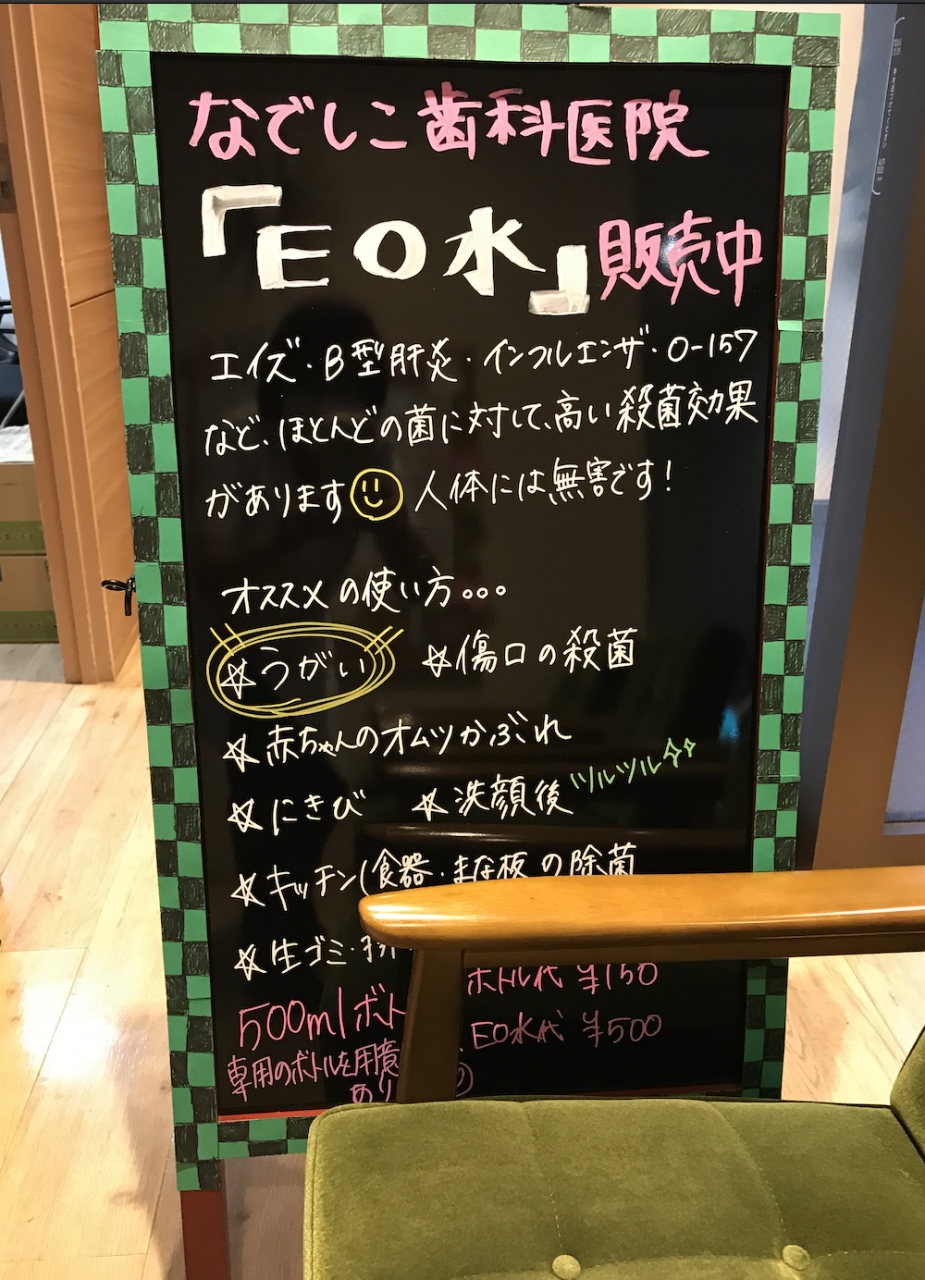 なでしこ歯科医院
「EO水」販売中
エイズ・B型肝炎・インフルエンザ・O-157
など、ほとんどの菌に対して、高い殺菌効果
があります 人体には無害です!
オススメの使い方。。。
☆うがい ☆傷口の殺菌
☆赤ちゃんのオムツかぶれ
☆にきび ☆洗顔後 ツルツル
☆キッチン(食器・まな板の除菌
☆生ゴミ・
500mlボト ボトル代 ¥150
EO水代 ¥500
専用のボトルを用意
あり